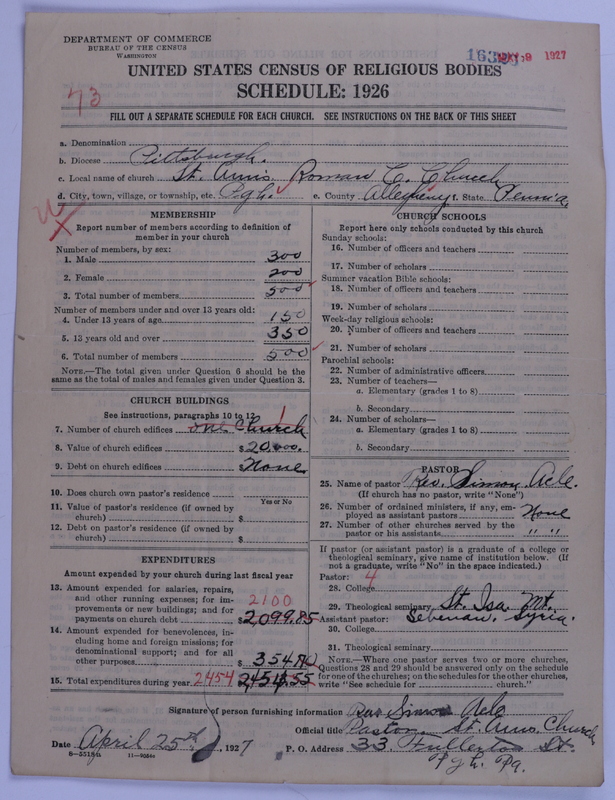 DEPARTMENT OF COMMERCE
BUREAU OF THE CENSUS
WASHINGTON
1927
UNITED STATES CENSUS OF RELIGIOUS BODIES
SCHEDULE: 1926
73
FILL OUT A SEPARATE SCHEDULE FOR EACH CHURCH. SEE INSTRUCTIONS ON THE BACK OF THIS SHEET
a. Denomination
b. Diocese Pittsburgh.
c. Local name of church St. Anns Roman C. Church
d. City, town, village, or township, etc. Pgh. e. County Allegheny f. State Penn'a.
MEMBERSHIP
Report number of members according to definition of member in your church
Number of members, by sex:
1. Male 300
2. Female 200
3. Total number of members 500
Number of members under and over 13 years old:
4. Under 13 years of age 150
5. 13 years old and over 350
6. Total number of members 500
NOTE.—The total given under Question 6 should be the same as the total of males and females given under Question 3.
CHURCH BUILDINGS
See instructions, paragraphs 10 to 12
7. Number of church edifices one Church 1
8. Value of church edifices $20,000.
9. Debt on church edifices $None.
10. Does church own pastor's residence
Yes or No
11. Value of pastor's residence (if owned by church) $
12. Debt on pastor's residence (if owned by church) $
EXPENDITURES
Amount expended by your church during last fiscal year
13. Amount expended for salaries, repairs, and other running expenses; for improvements or new buildings; and for payments on church debt 2100 $2099.85
14. Amount expended for benevolences, including home and foreign missions; for denominational support; and for all other purposes $354.70
15. Total expenditures during year 2454 2454.55
CHURCH SCHOOLS
Report here only schools conducted by this church
Sunday schools:
16. Number of officers and teachers
17. Number of scholars
Summer vacation Bible schools:
18. Number of officers and teachers
19. Number of scholars
Week-day religious schools:
20. Number of officers and teachers
21. Number of scholars
Parochial schools:
22. Number of administrative officers
23. Number of teachers—
a. Elementary (grades 1 to 8)
b. Secondary
24. Number of scholars—
a. Elementary (grades 1 to 8)
b. Secondary
PASTOR
25. Name of pastor Rev. Simon Acle.
(If church has no pastor, write "None")
26. Number of ordained ministers, if any, employed as assistant pastors None
27. Number of other churches served by the pastor or his assistants " "
If pastor (or assistant pastor) is a graduate of a college or theological seminary, give name of institution below. (If not a graduate, write "No" in the space indicated.)
Pastor: 4
28. College
29. Theological seminary St. Isa. Mt.
Assistant pastor: Lebenan. Syria.
30. College
31. Theological seminary
NOTE.—Where one pastor serves two or more churches, Questions 28 and 29 should be answered only on the schedule for one of the churches; on the schedules for the other churches, write "See schedule for church."
Signature of person furnishing information Rev Simon Acle
Official title Pastor, St. Anns. Church
Date April 25th, 1927 P. O. Address 33 Fullerton St.
8-5518a 11-9064a Pgh. Pa.